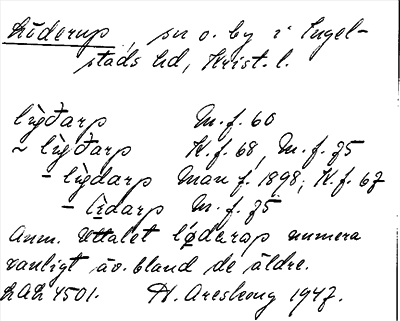 Löderup, sn o. by i Ingel-
stads hd, Krist. l.
lỳgðarp M. f. 60
~ lỳgðarp K. f. 68, M. f. 75
- lỳgdarp Man f. 1898; K. f. 67
- lìdarp M. f. 75
Anm. Uttalet løderap numera
vanligt äv. bland de äldre.
LAL 4501. H. Areskoug 1947.